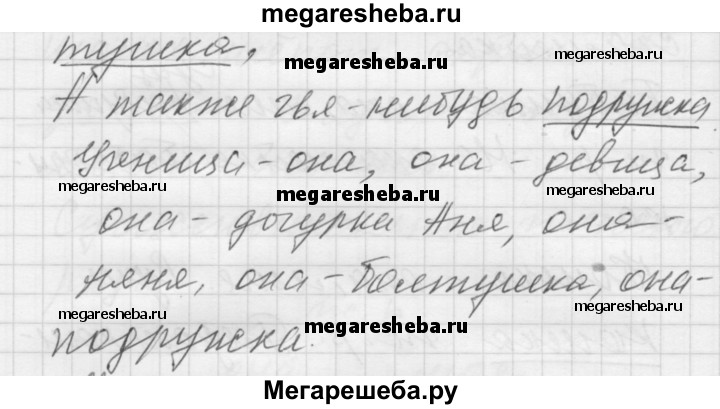 megaresheba.ru
тушка.
megaresheba.ru
А также чья-нибудь подружка
megaresheba.ru
Ученица - она, она - девица,
megaresheba.ru
megaresheba.ru
megaresheba.ru
она - дочурка Аня, она -
няня, она - болтушка, она -
megaresheba.ru
megaresheba.ru
megaresheba.ru
подружка.
Мегарешеба.ру